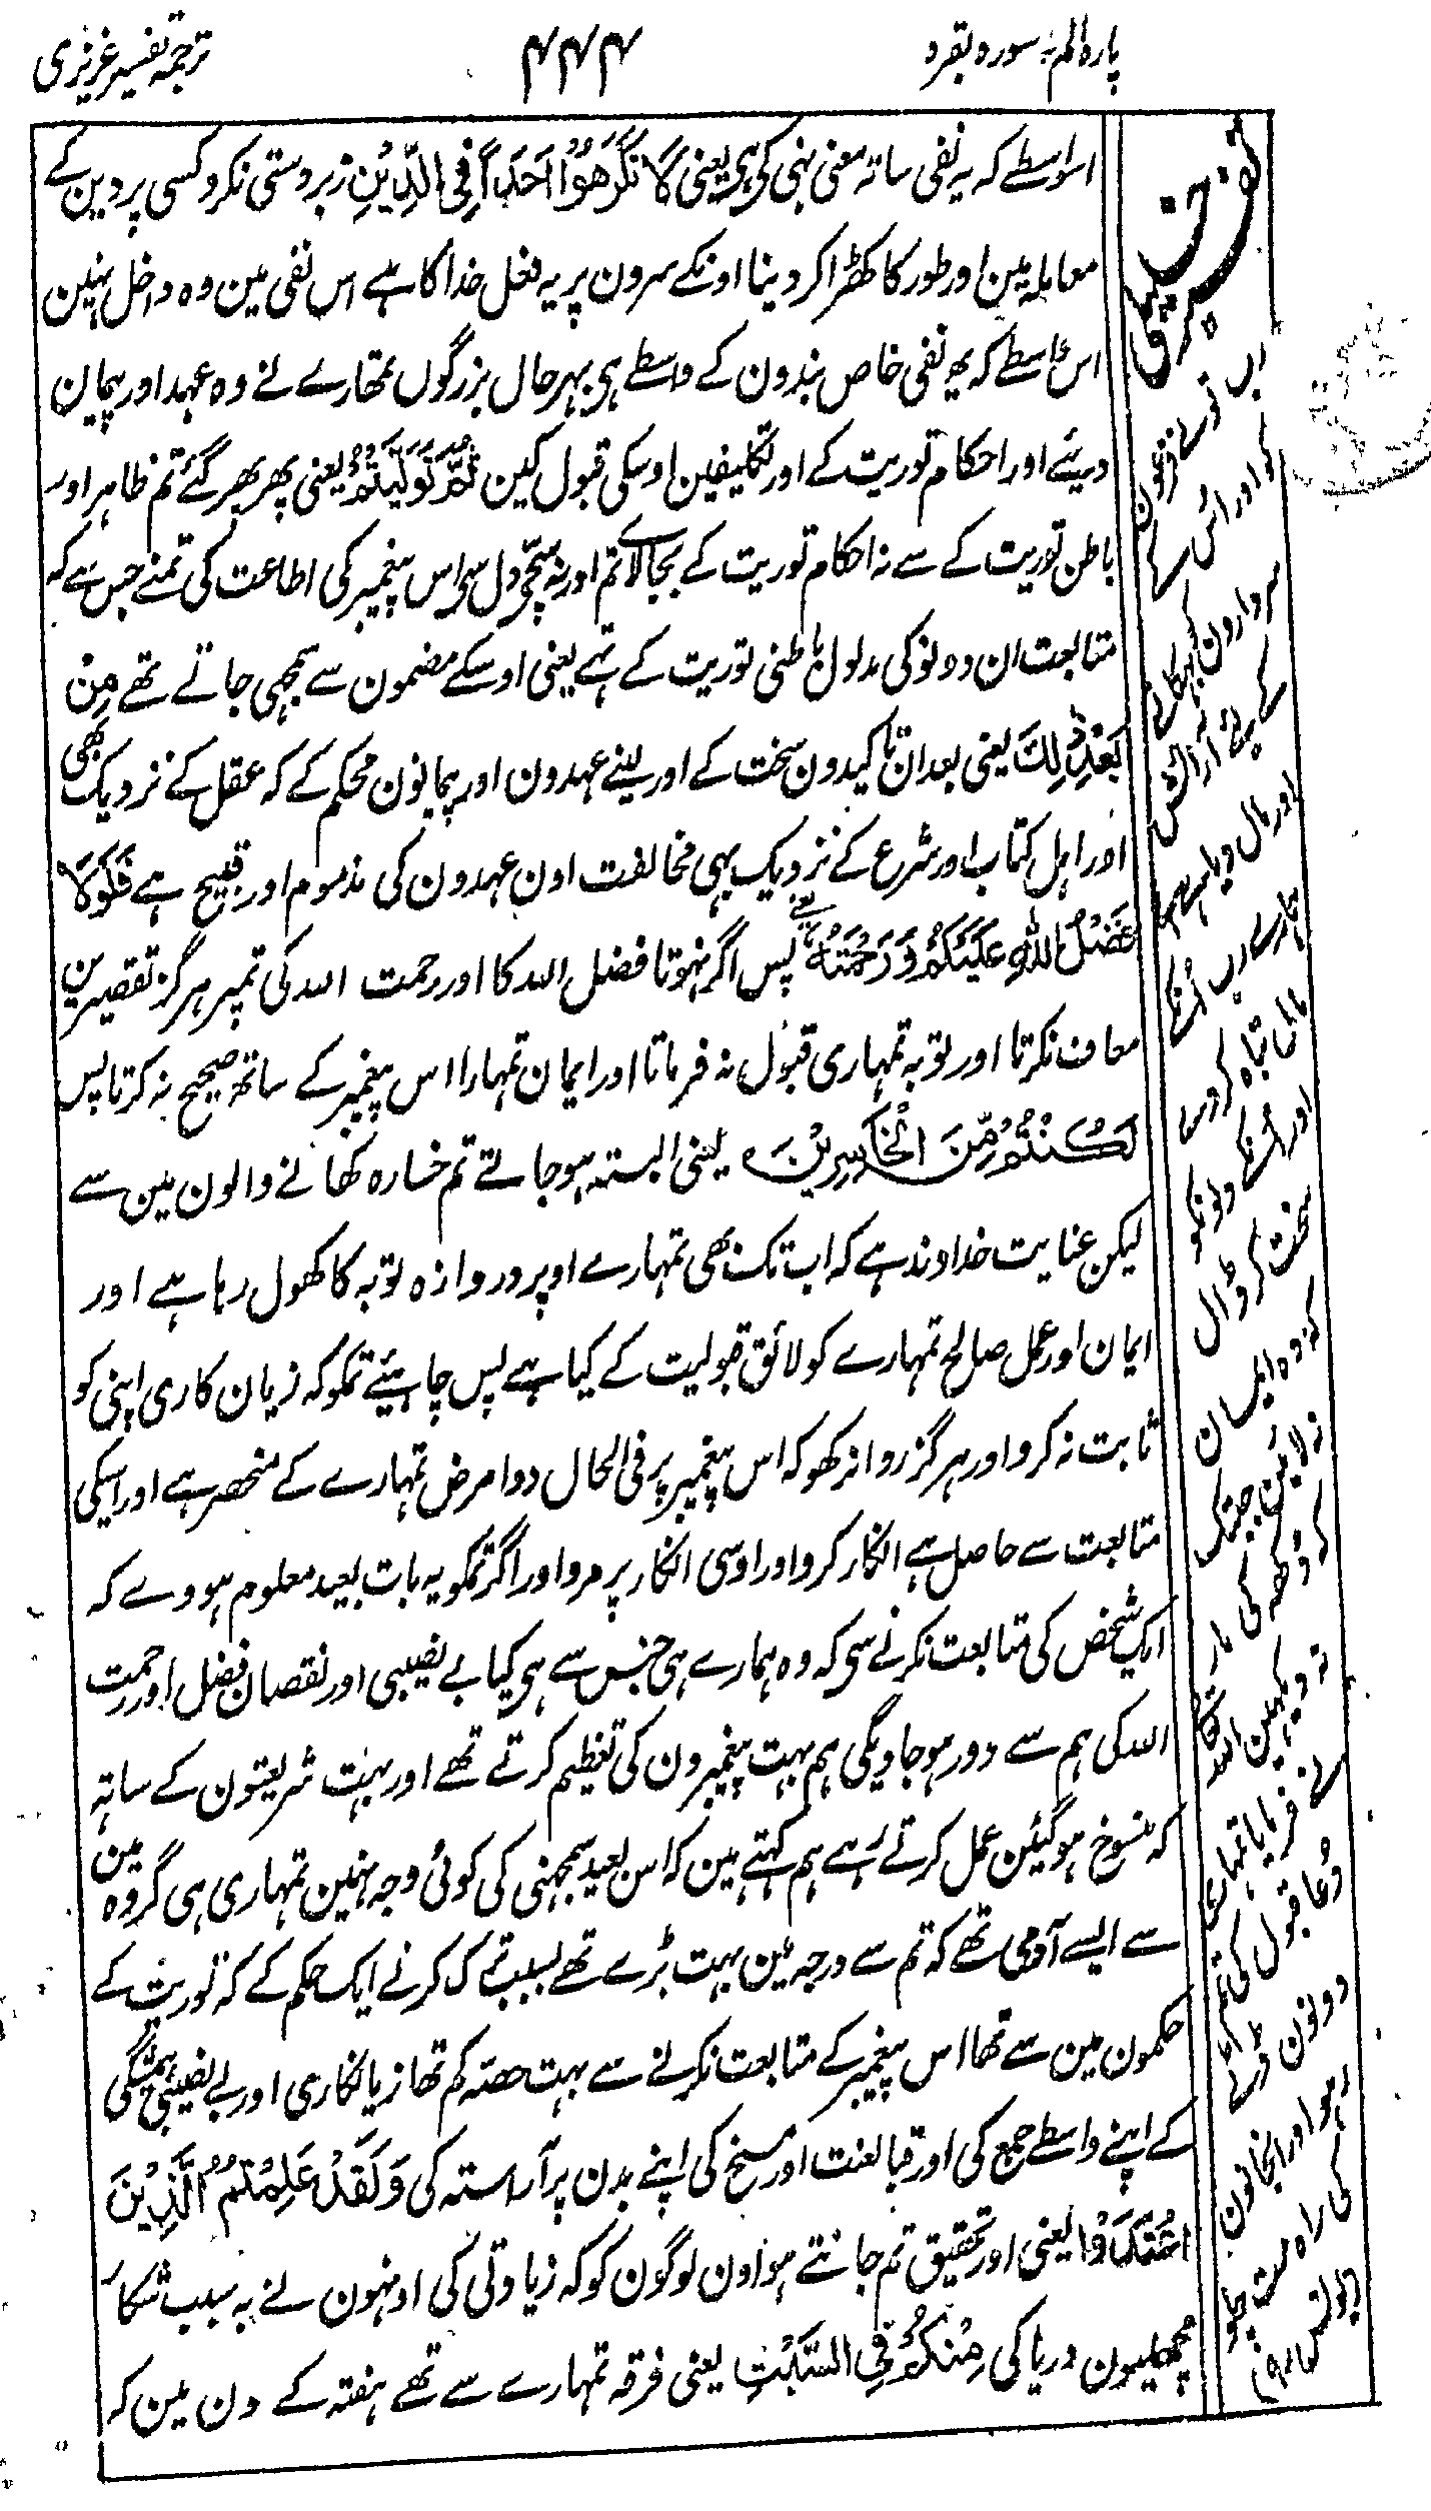 پارہ الم؞ سورہ بقرہ
۴۴۴
ترجمہ تفسیر عزیزی
اسواسطے کہ یہ نفی ساتہ معنی نہی کی ہی یعنی لَا تُكْرِهُوْا اَحَدًا فِی الدِّیْنِ زبردستی نکرو کسی پر دین کے
معاملہ مین اور طور کا کھڑا کر دینا اونکے سرون پر یہ فعل خدا کا ہے اس نفی مین وہ داخل نہین
اس واسطے کہ یہ نفی خاص بندون کے واسطے ہی بہر حال بزرگوں تمھارے نے وہ عہد اور پیمان
دیئے اور احکام توریت کے اور تکلیفین اوسکی قبول کین ثُمَّ تَوَلَّیْتُمْ یعنی پھر پھر گئے تم ظاہر اور
باطن توریت کے سے نہ احکام توریت کے بجا لائے تم اور نہ سچّے دل سی اس پیغمبر کی اطاعت کی تمنے جس سے کہ
متابعت ان دونو کی مدلول باطنی توریت کے تہے یعنی اوسکے مضمون سے سمجھی جاتے تھے مِنْ
بَعْدِ ذٰلِكَ یعنی بعد ان تاکیدون سخت کے اور لینے عہدون اور پیمانون محکم کے کہ عقل کے نزدیک بھی
اور اہل کتاب اور شرع کے نزدیک بہی مخالفت اون عہدون کی مذموم اور قبیح ہے فَلَوْلَا
فَضْلُ اللّٰهِ عَلَیْكُمْ وَ رَحْمَتُهٗ پس اگر نہوتا فضل اللہ کا اور رحمت اللہ کی تمپر ہرگز تقصیرین
معاف نکرتا اور توبہ تمہاری قبول نہ فرماتا اور ایمان تمہارا اس پیغمبر کے ساتھ صحیح نہ کرتا پس
لَكُنْتُمْ مِّنَ الْخَاسِرِیْنَ یعنی البتہ ہو جاتے تم خسارہ کھانے والون مین سے
لیکن عنایت خداوند ہے کہ اب تک بھی تمہارے اوپر دروازہ توبہ کا کھول رہا ہے اور
ایمان اور عمل صالح تمہارے کو لائق قبولیت کے کیا ہے پس چاہیئے تمکو کہ زیان کاری اپنی کو
ثابت نہ کرو اور ہرگز روا نہ رکھو کہ اس پیغمبر پر فی الحال دوا مرض تمہارے کے منحصر ہے اور اسکی
متابعت سے حاصل ہے انکار کرو اور اوسی انکار پر مرو اور اگر تمکو یہ بات بعید معلوم ہووے کہ
ایک شخص کی متابعت نکرنے سی کہ وہ ہمارے ہی جنس سے ہی کیا بے نصیبی اور نقصان فضل اور رحمت
اللہ کی ہم سے دور ہو جاویگی ہم بہت پیغمبرون کی تعظیم کرتے تھے اور بہت شریعتون کے ساتہ
کہ منسوخ ہوگئین عمل کرتے رہے ہم کہتے ہین کہ اس بعید سمجہنی کی کوئی وجہ نہین تمہاری ہی گروہ مین
سے ایسے آدمی تھے کہ تم سے درجہ مین بہت بڑے تھے بسبب ترک کرنے ایک حکم کے کہ توریت کے
حکمون مین سے تھا اس پیغمبر کے متابعت نکرنے سے بہت حصہ کم تھا زیانکاری اور بے نصیبی ہمیشگی
کے اپنے واسطے جمع کی اور قبا لعنت اور مسخ کی اپنے بدن پر آراستہ کی وَ لَقَدْ عَلِمْتُمُ الَّذِیْنَ
اعْتَدَوْا یعنی اور تحقیق تم جانتے ہو اون لوگون کو کہ زیادتی کی اونہون نے بہ سبب شکار
مچھلیون دریا کی مِنْكُمْ فِی السَّبْتِ یعنی فرقہ تمہارے سے تھے ہفتہ کے دن مین کہ
کو اور اُس کے
سردارون کو بہکانے
کے لئے آرائش
اور مال دیا ہے
ہمارے رب اُنکے
مال تباہ کردے
اور اُنکے دلونکو
سخت کر ڈال
کہ وہ ایمان
نہ لائین جبتک
کہ دُکھ کی مار
نہ دیکہین اللہ تعالٰے
نے فرمایا تمہاری
دُعا قبول کی تم
دونون ڈٹے
رہو اور انجانون
کی راہ مت چلو